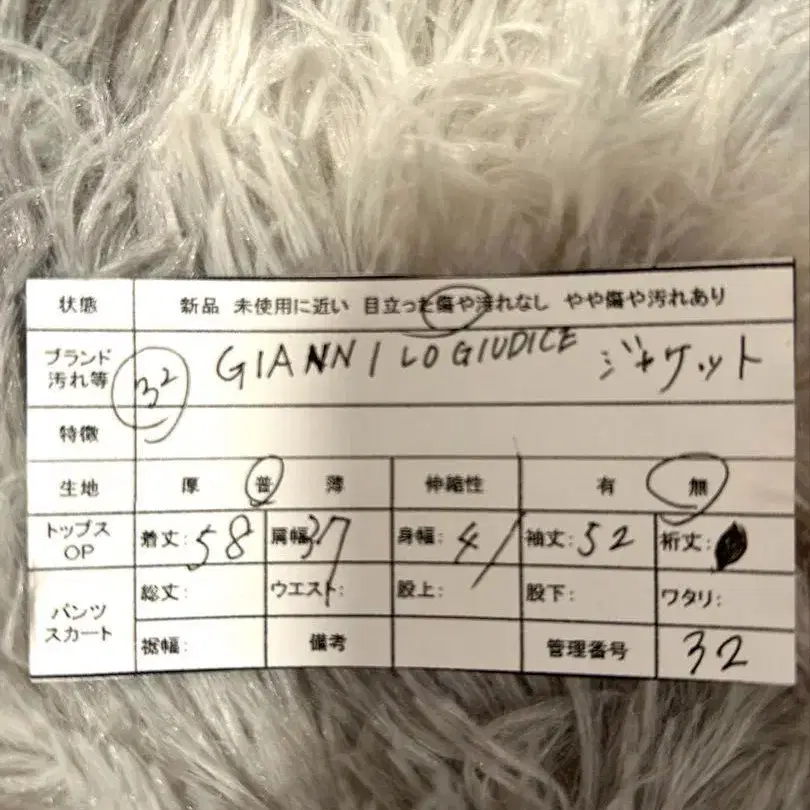 状態 新品 未使用に近い 目立った傷や汚れなし やや傷や汚れあり
ブランド
汚れ等 32 GIANNI LO GIUDICE ジャケット
特徴
生地 厚 普 薄 伸縮性 有 無
トップス
OP 着丈:58 肩幅:37 身幅:41 袖丈:52 裄丈:
パンツ
スカート 総丈: ウエスト: 股上: 股下: ワタリ:
裾幅: 備考 管理番号 32